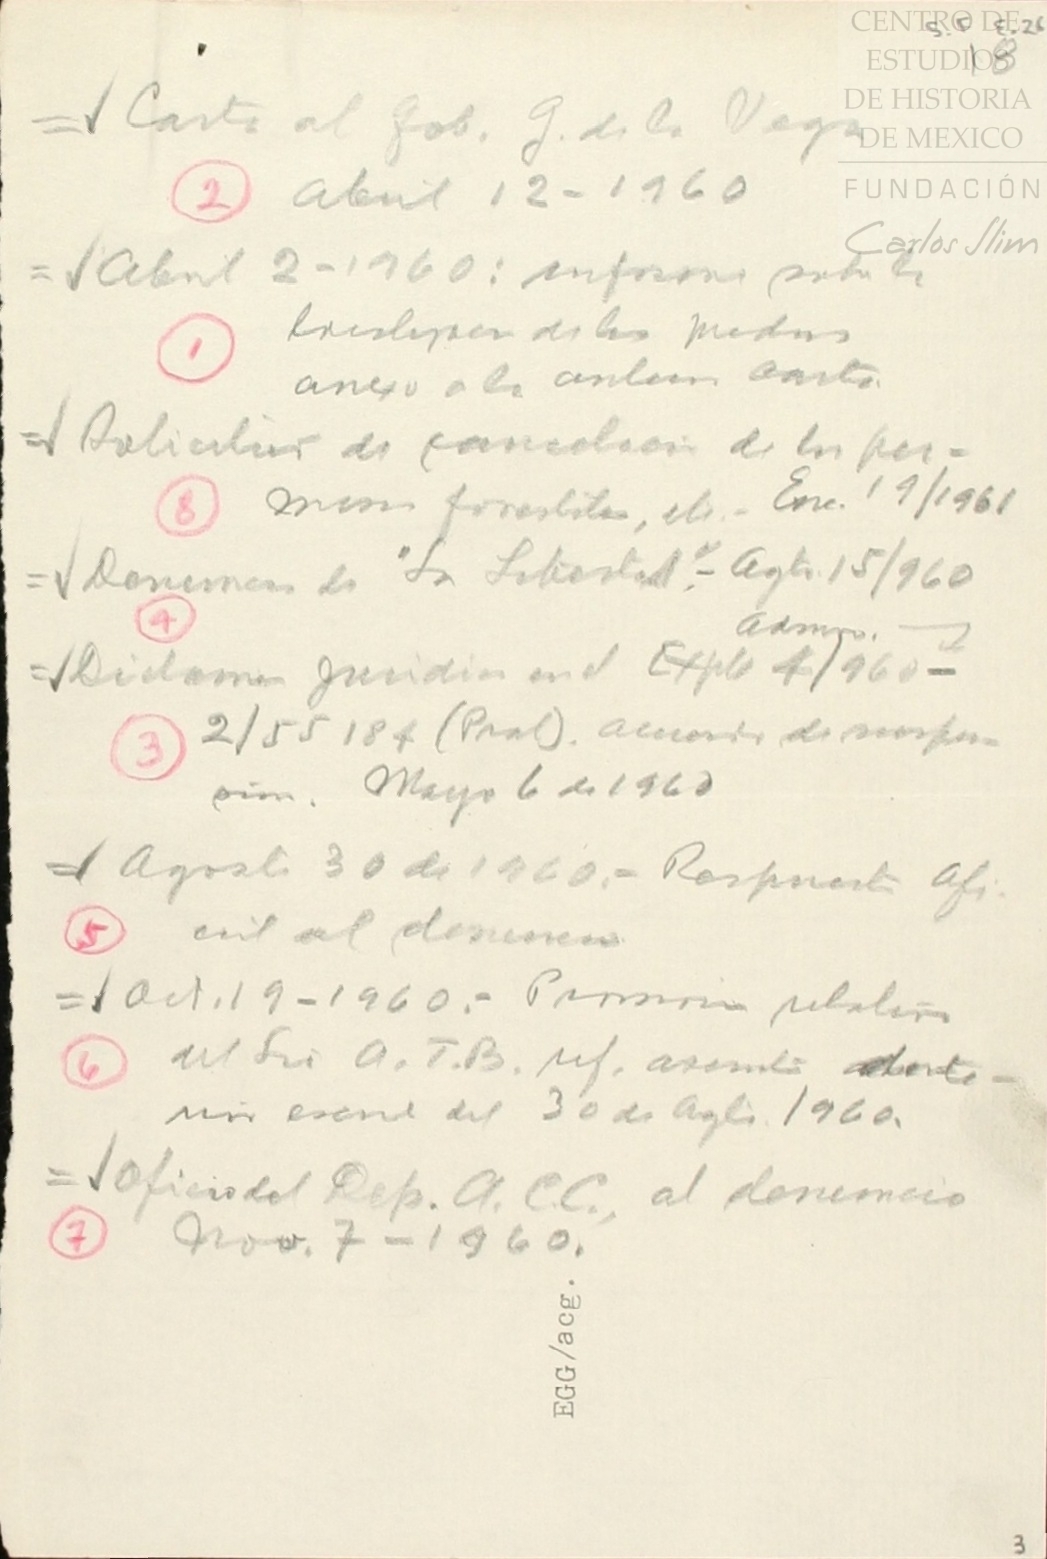 CENTRO DE
ESTUDIOS
DE HISTORIA
DE MEXICO
FUNDACIÓN
Carlos Slim
18
=√ Carta al Gob. G. de la Vega
② Abril 12-1960
=√ Abril 2-1960: informe sobre la
① de los predios
anexo a la anterior carta.
=√ Solicitud de cancelación de los per-
⑧ misos forestales, etc.- Ene. 19/1961
=√ Denuncia de "La Libertad".- Agto. 15/960
④
=√ Dictamen jurídico en el Expte 4/960-
③ 2/55184 (Pral). acuerdo de suspen-
sión. Mayo 6 de 1960
=√ Agosto 30 de 1960.- Respuesta Ofi-
⑤ cial al denuncio
=√ Oct. 19-1960.- Promoción
⑥ del Sr. A.T.B. ref. asunto
del 30 de Agto. 1960.
=√ Oficio del Dep. A.C.C., al denuncio
⑦ Nov. 7-1960.
EGG/acg.
3